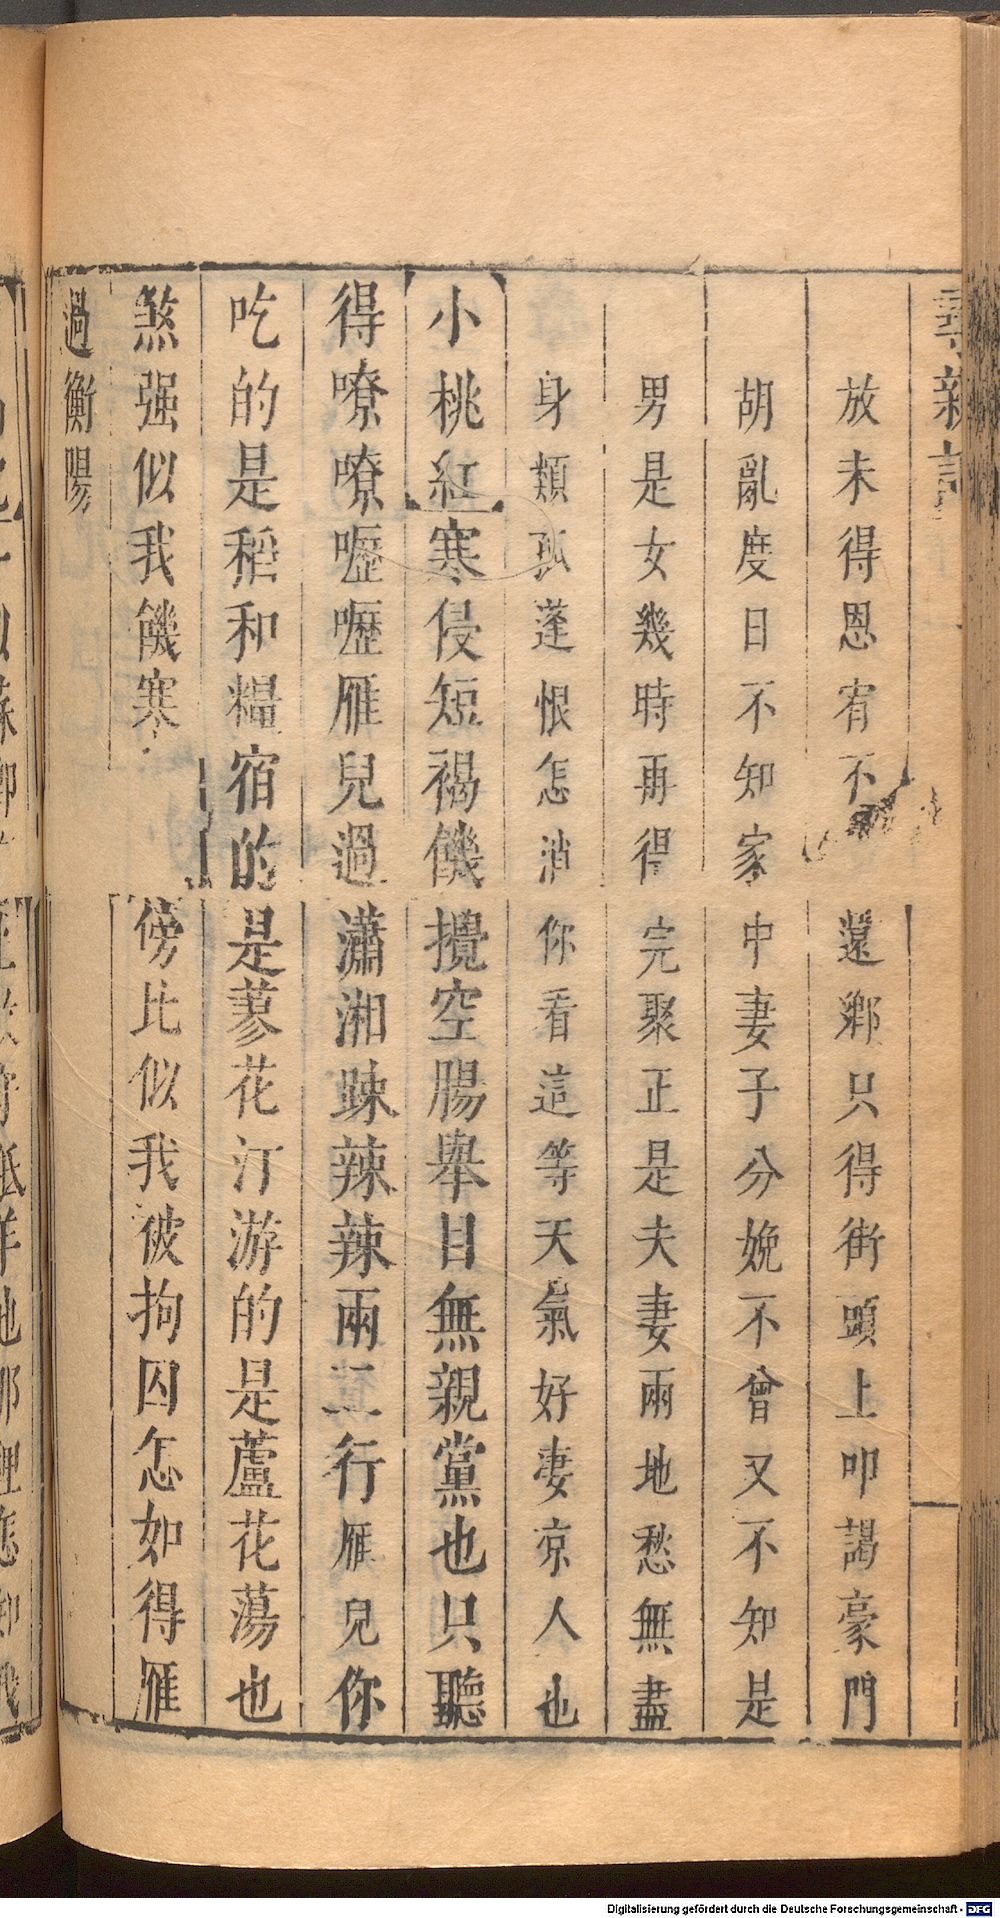 尋親記
放未得恩宥不 還鄉只得街頭上叩謁豪門
胡亂度日不知家中妻子分娩不曾又不知是
男是女幾時再得完聚正是夫妻兩地愁無盡
身類孤蓬恨怎消你看這等天氣好淒凉人也
小桃紅寒侵短褐饑攪空腸舉目無親黨也只聽
得嘹嘹嚦嚦雁兒過瀟湘踈辣辣兩一行雁兒你
吃的是稻和糧宿的是蓼花汀游的是蘆花蕩也
煞强似我饑寒 傍比似我被拘囚怎如得雁
過衡陽
Digitalisierung gefördert durch die Deutsche Forschungsgemeinschaft - DFG